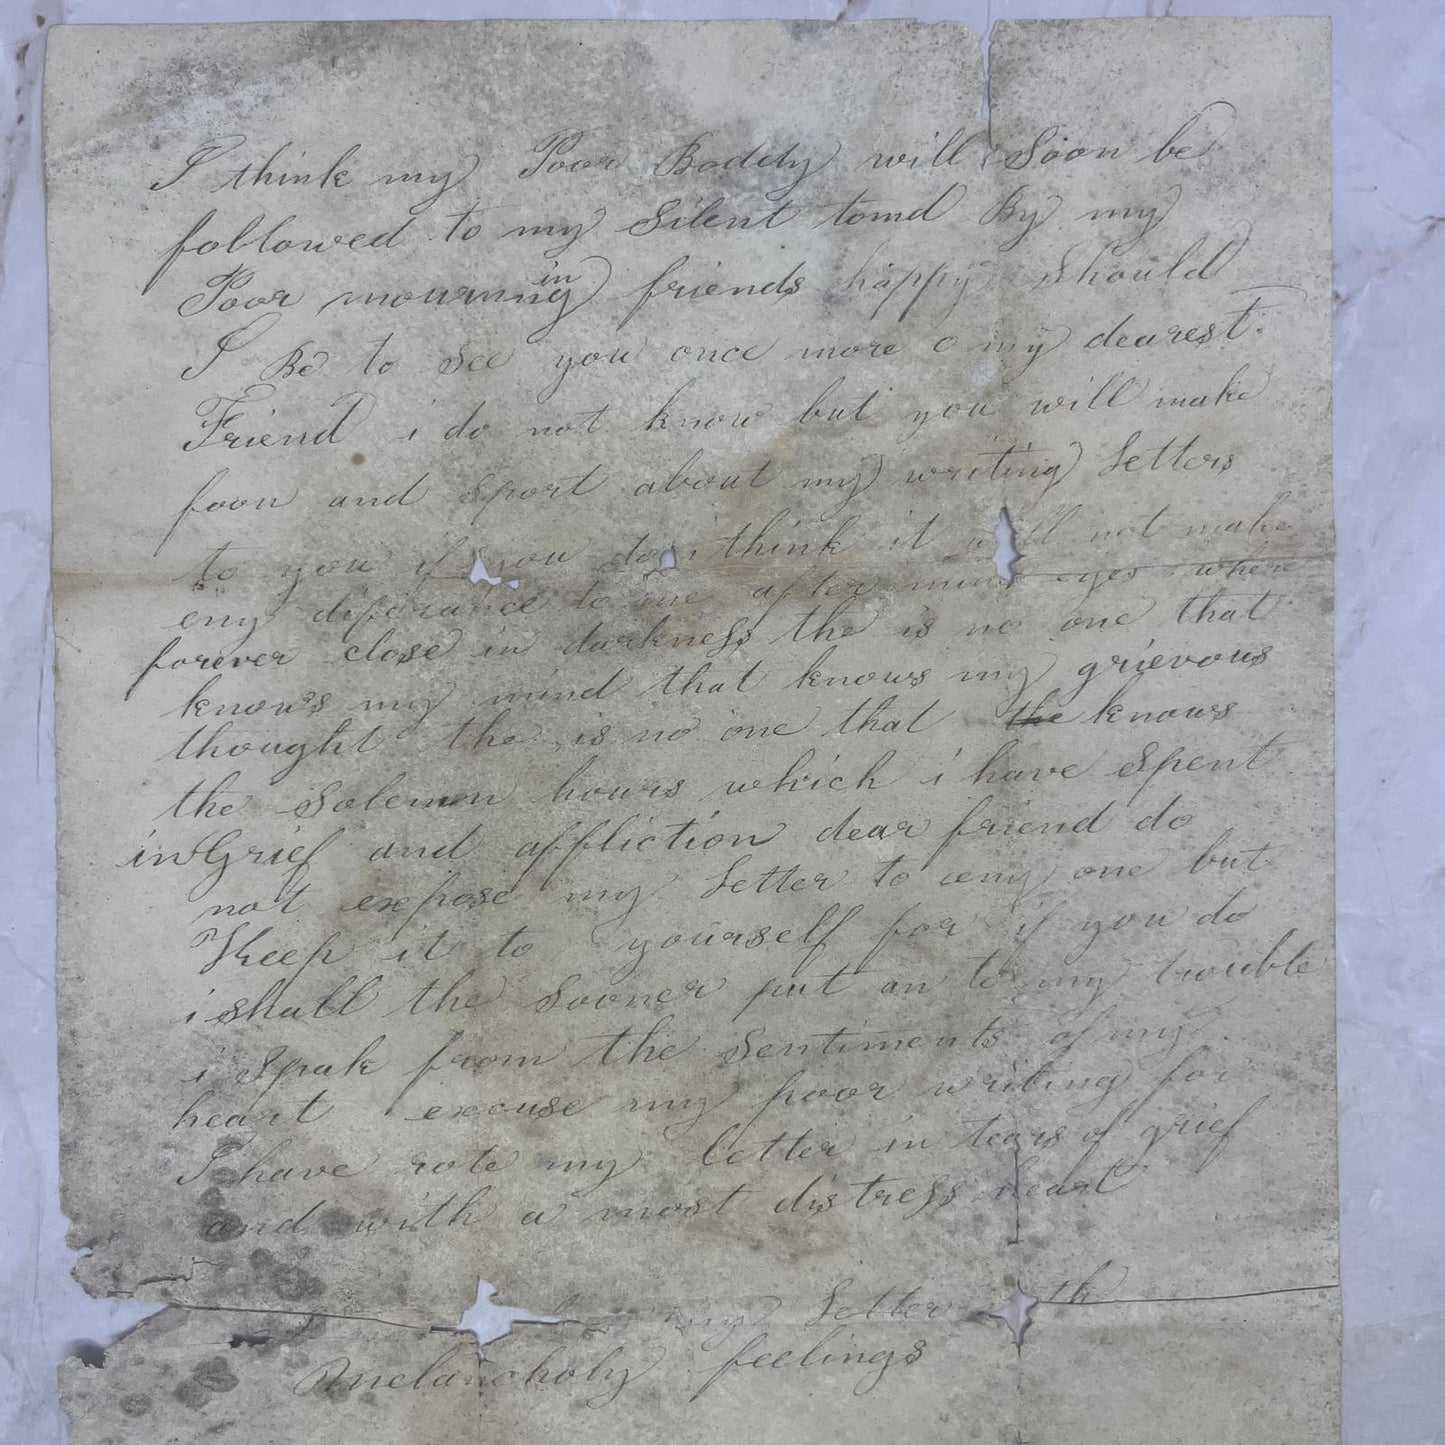 I think my Poor Boddy will Soon be
followed to my Silent tomd By my
Poor mourning in friends happy Should
I Be to See you once more o my dearest
Friend i do not know but you will make
foon and Sport about my writing Letters
to you if you do i think it will not make
eny diferance to me after mine eyes where
forever close in darkness the is no one that
knows my mind that knows my grievous
thought the is no one that the knows
the Solemn hours which i have Spent
in Grief and affliction dear friend do
not expose my Letter to eny one but
Keep it to yourself for if you do
i shall the Sooner put an to my trouble
i Spak from the Sentiments of my
heart excuse my poor writing for
I have rote my letter in tears of grief
and with a most distress heart
my Letter
Melancholy feelings